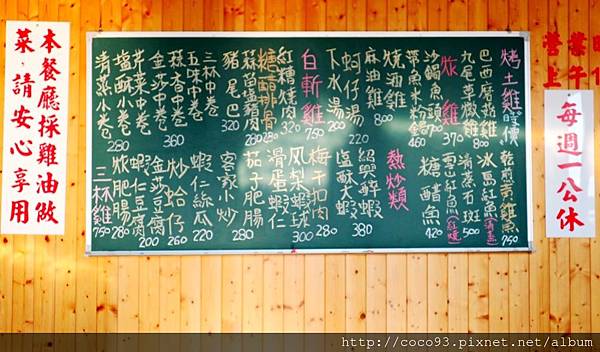 本餐廳採雞油做
菜．請安心享用
營業時
上午1
每週一公休
烤土雞 時價
巴西磨菇雞
九尾草燉雞 370
炸雞 450
沙鍋魚頭
帶魚米粉鍋
燒酒雞
麻油雞 800
蚵仔湯
下水湯 200
白斬雞 750
紅糟燒肉 320
糖醋排骨
蒜苗鹹豬肉 280
豬尾巴 320
三杯中卷
五味中卷
蒜香中卷 360
金莎中卷
芹菜中卷 280
塩酥小卷
清蒸小卷
乾煎黃雞魚 750
冰島紅魚(清蒸)
清蒸石斑 500
雪山紅魚(紅燒)
糖醋魚 420
熱炒類
紹興醉蝦 380
塩酥大蝦 280
梅干扣肉
鳳梨蝦球 300
滑蛋蝦仁
茄子肥腸 280
客家小炒
蝦仁絲瓜 220
炒蛤仔 260
金莎豆腐
蝦仁豆腐 200
炸肥腸 280
三杯雞 750
http://coco93.pixnet.net/album